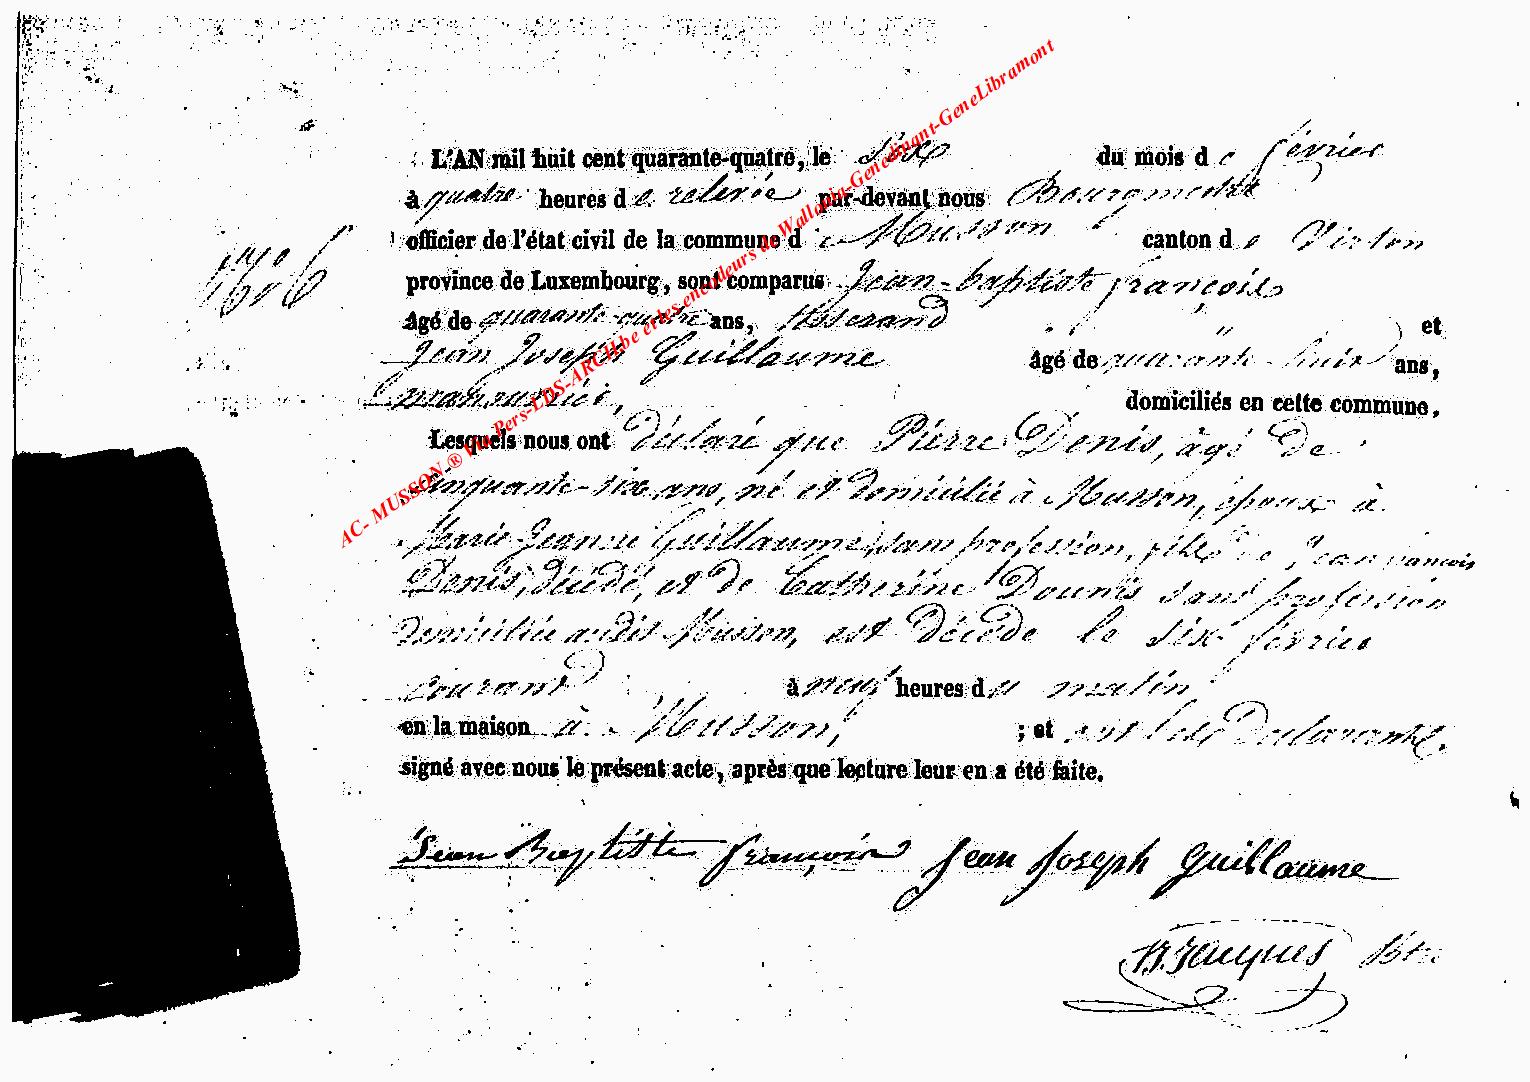 L'AN mil huit cent quarante-quatre, le six du mois de février
à quatre heures de relevée par-devant nous Bourgmestre
officier de l'état civil de la commune de Musson canton de Virton
province de Luxembourg, sont comparus Jean-baptiste françois
âgé de quarante-quatre ans, tisserand et
Jean Joseph Guillaume âgé de quarante huit ans,
manouvrier, domiciliés en cette commune.
Lesquels nous ont déclaré que Pierre Denis, âgé de
cinquante-six ans, né et domicilié à Musson, époux à
Marie Jeanne Guillaume, sans profession, fils de Jean françois
Denis, décédé, et de Catherine Dounis sans profession
domiciliée audit Musson, est décédé le six février
courant à neuf heures du matin
en la maison à Musson, ; et ont les déclarants
signé avec nous le présent acte, après que lecture leur en a été faite.
Jean Baptiste françois Jean Joseph Guillaume
Jacques
AC- MUSSON ® Via Pers-LDS-ARCH.be et les encodeurs de Wallonia-Genedinant-GeneLibramont